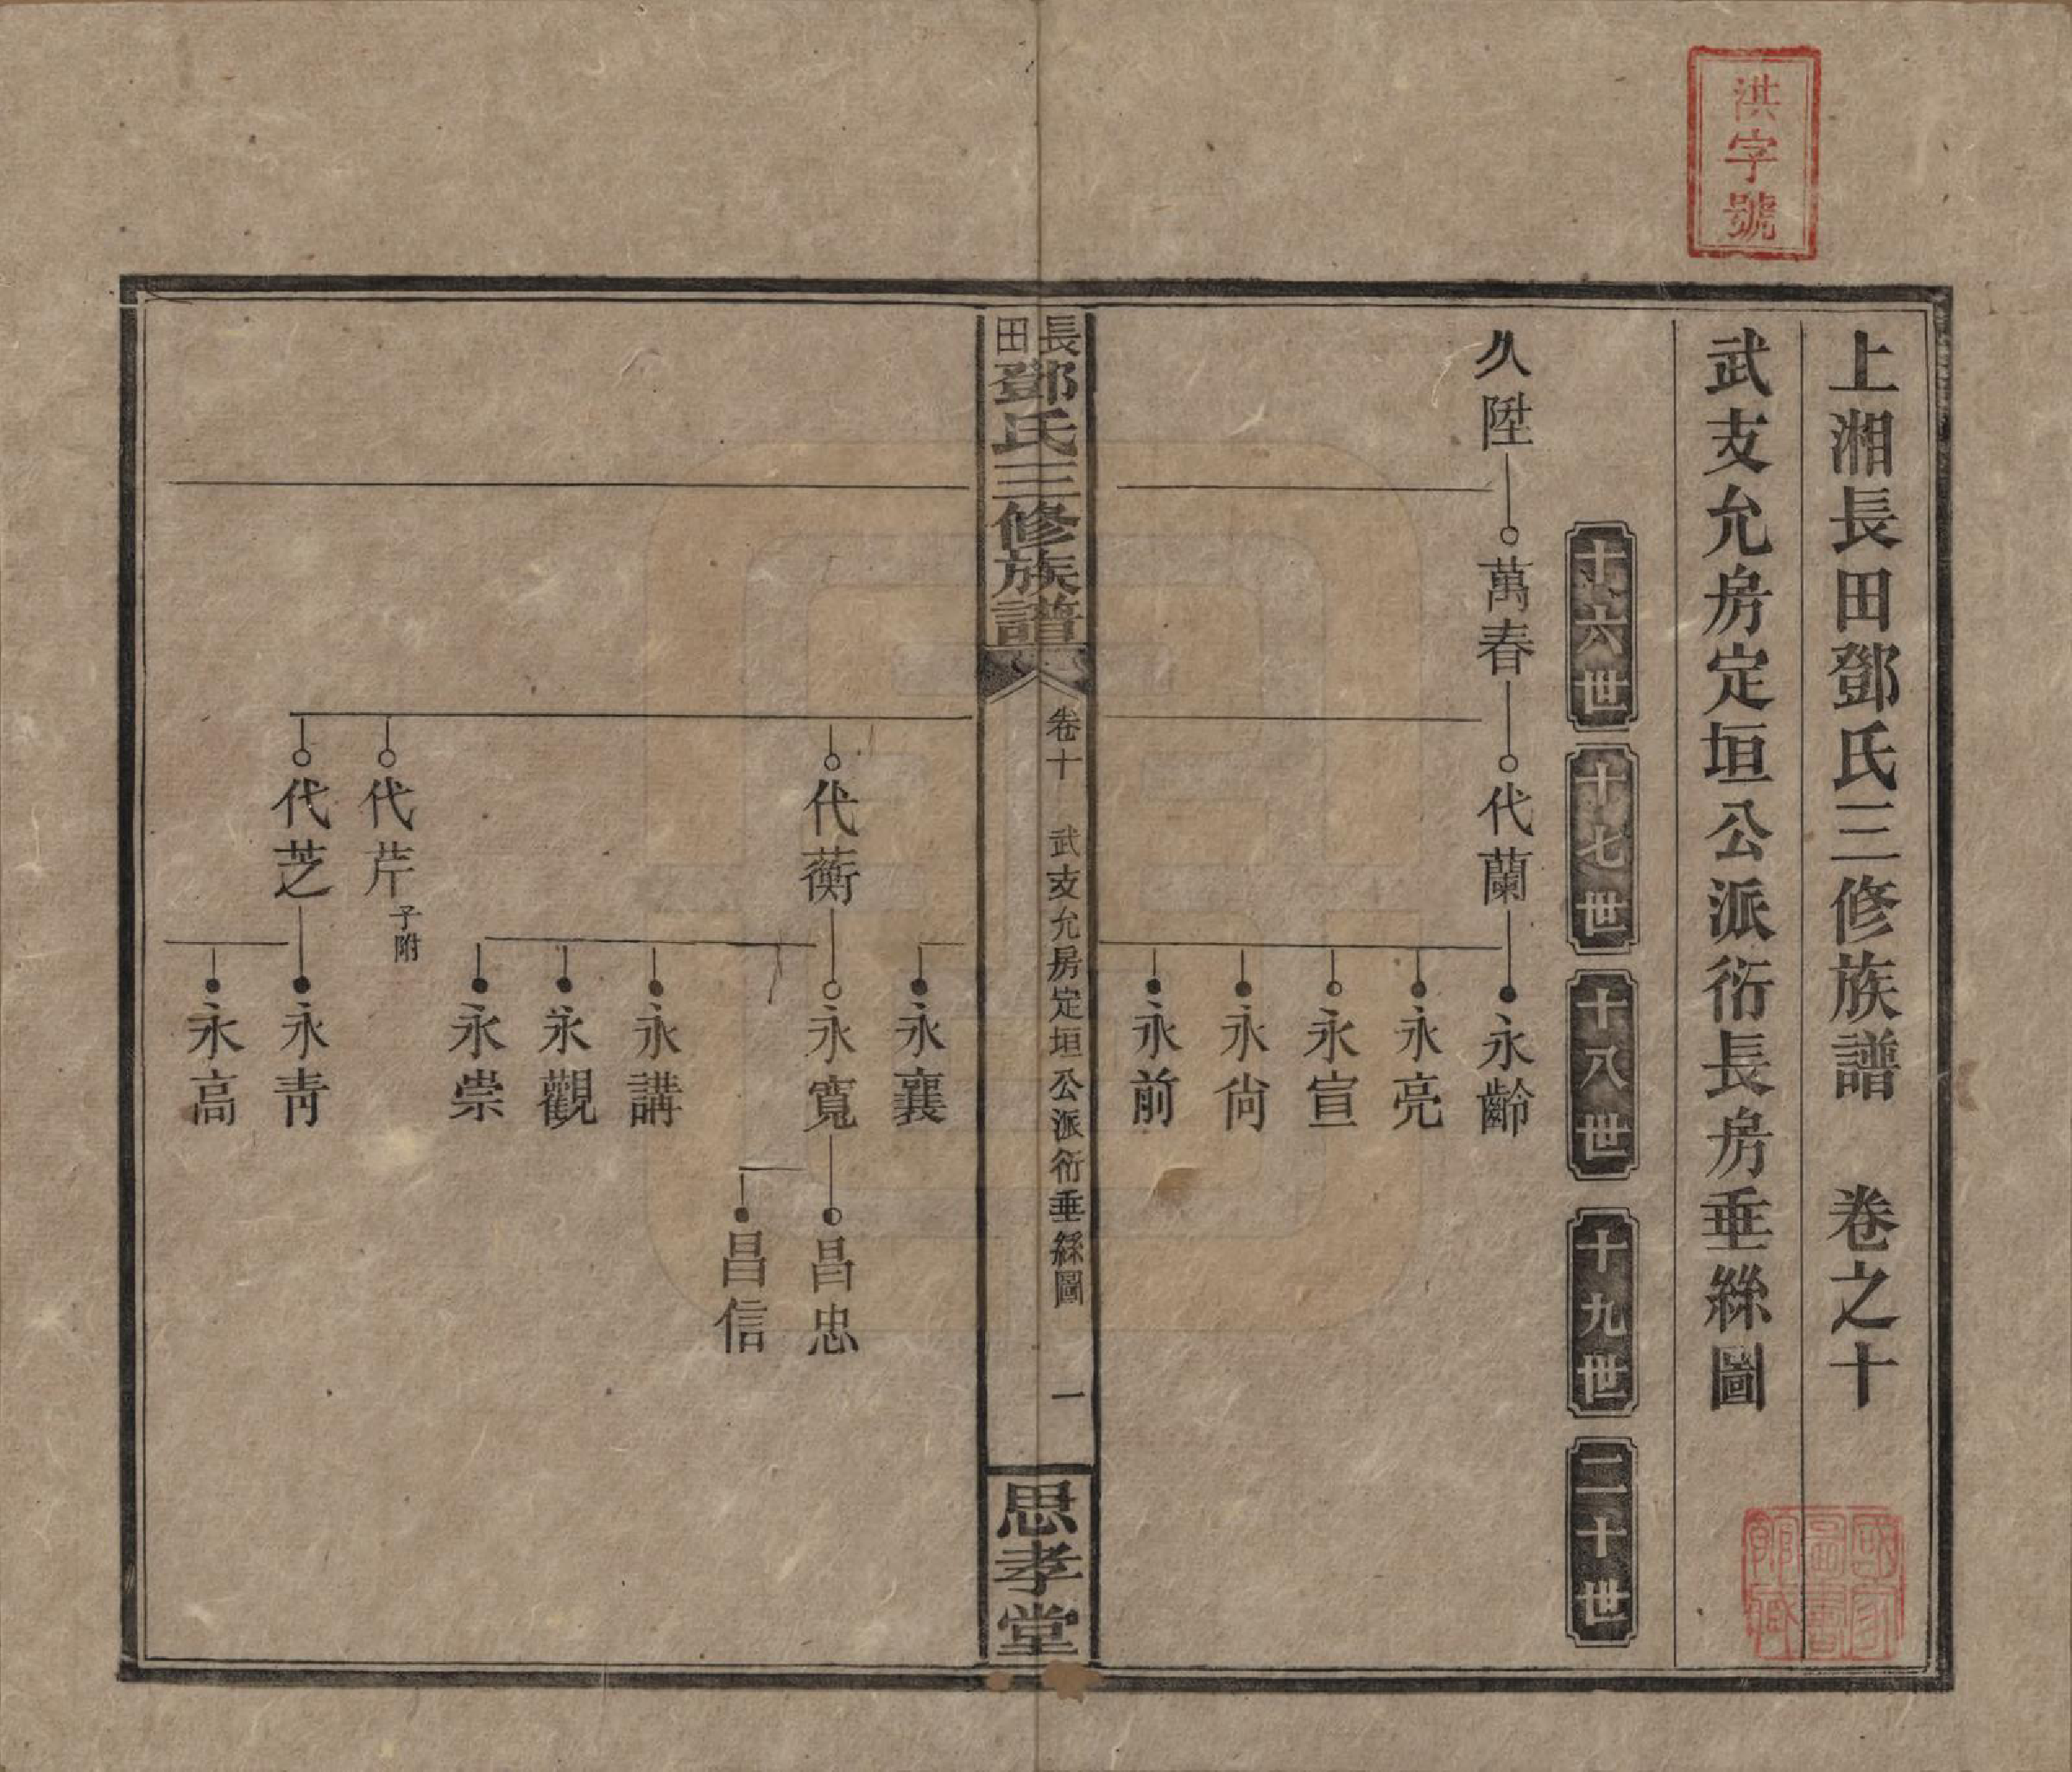 洪字號
上湘長田鄧氏三修族譜　卷之十
武支允房定垣公派衍長房垂絲圖
十六世
十七世
十八世
十九世
二十世
久陞
萬春
代蘭
永齡
永亮
永宣
永尙
永前
長田鄧氏三修族譜
卷十
武支允房定垣公派衍垂絲圖
一
思孝堂
永襄
代蘅
永寬
昌忠
昌信
永講
永觀
永崇
代芹
子附
代芝
永青
永高
國家圖書館藏